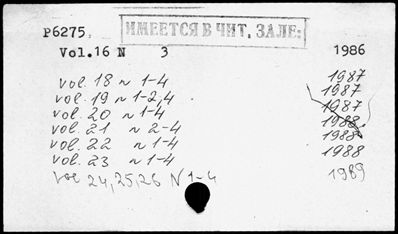 P6275.
ИМЕЕТСЯ В ЧИТ. ЗАЛЕ:
Vol.16 N 3 1986
vol. 18 n 1-4 1987
vol. 19 n 1-2,4. 1987
vol. 20 n 1-4 1987
vol. 21 n 2-4 1988
vol. 22 n 1-4 1988
vol. 23 n 1-4 1988
vol 24,25,26 N 1-4 1989